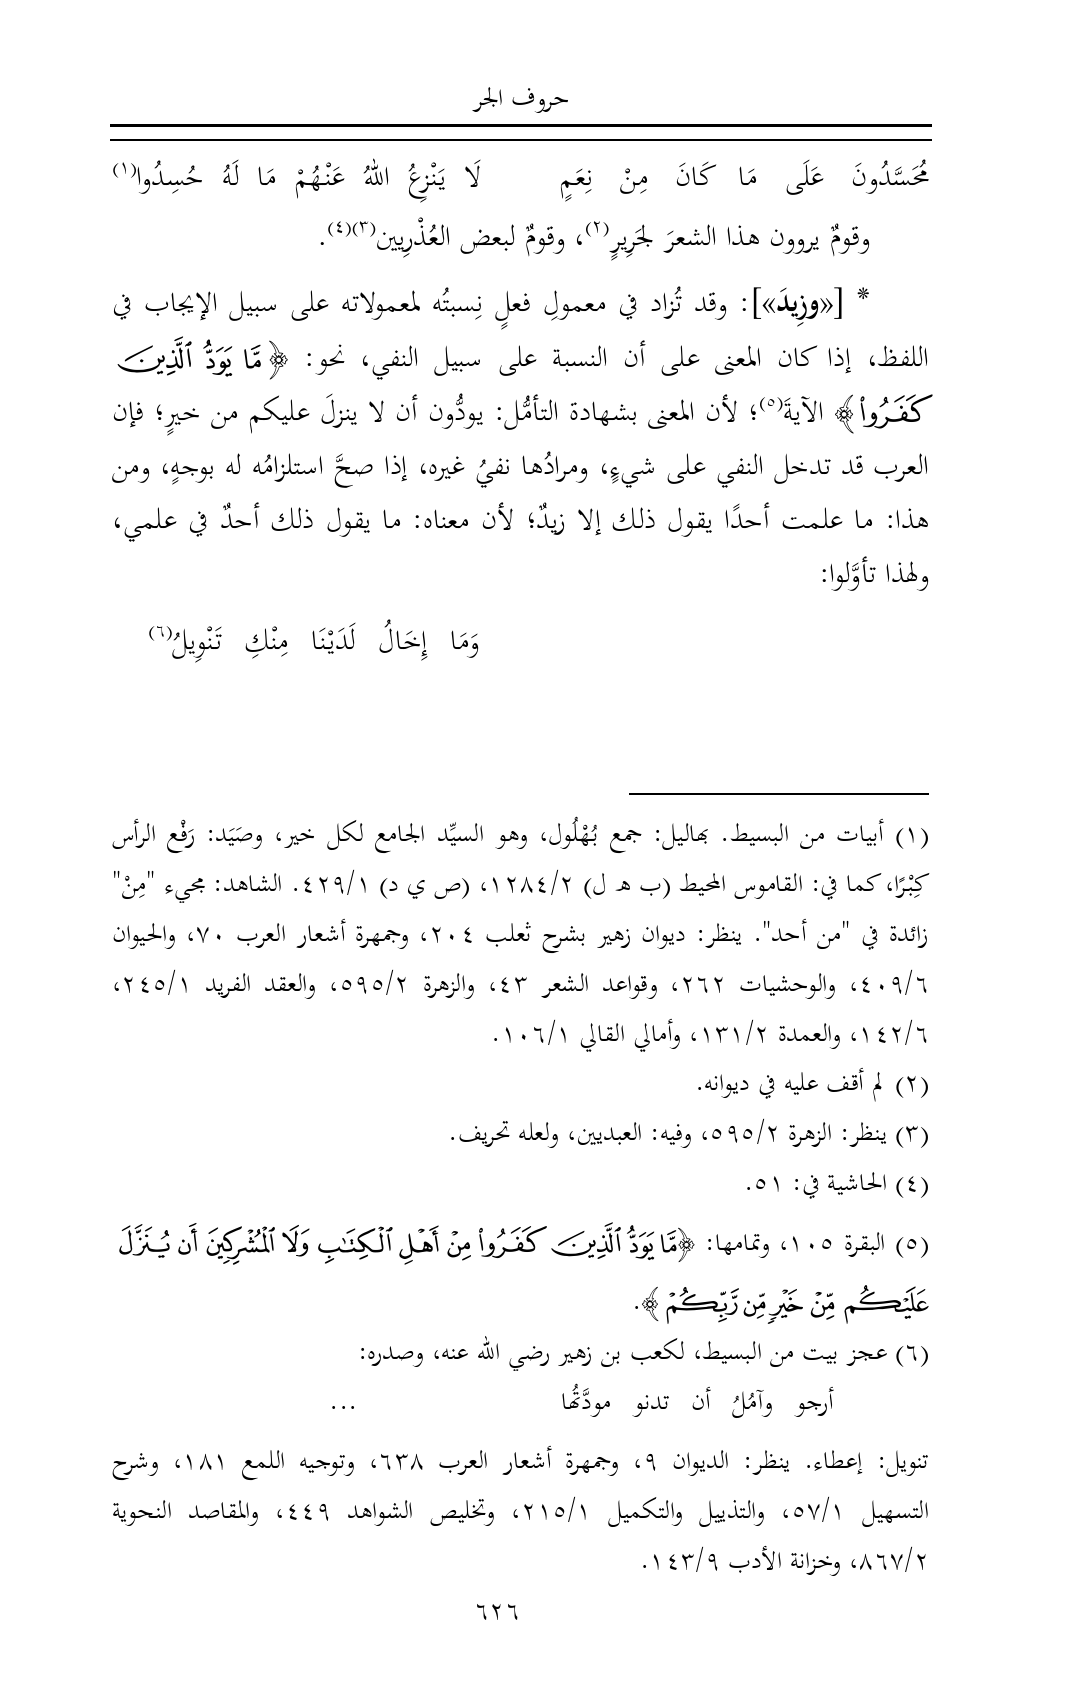 حروف الجر
مُحَسَّدُونَ عَلَى مَا كَانَ مِنْ نِعَمٍ لَا يَنْزِعُ اللهُ عَنْهُمْ مَا لَهُ حُسِدُوا(١)
وقومٌ يروون هذا الشعرَ لجَرِيرٍ(٢)، وقومٌ لبعض العُذْرِيين(٣)(٤).
* [«وزِيدَ»]: وقد تُزاد في معمولِ فعلٍ نِسبتُه لمعمولاته على سبيل الإيجاب في
اللفظ، إذا كان المعنى على أن النسبة على سبيل النفي، نحو: ﴿مَّا يَوَدُّ ٱلَّذِينَ
كَفَرُواْ﴾ الآيةَ(٥)؛ لأن المعنى بشهادة التأمُّل: يودُّون أن لا ينزلَ عليكم من خيرٍ؛ فإن
العرب قد تدخل النفي على شيءٍ، ومرادُها نفيُ غيره، إذا صحَّ استلزامُه له بوجهٍ، ومن
هذا: ما علمت أحدًا يقول ذلك إلا زيدٌ؛ لأن معناه: ما يقول ذلك أحدٌ في علمي،
ولهذا تأوَّلوا:
وَمَا إِخَالُ لَدَيْنَا مِنْكِ تَنْوِيلُ(٦)
(١) أبيات من البسيط. بهاليل: جمع بُهْلُول، وهو السيِّد الجامع لكل خير، وصَيَد: رَفْع الرأس
كِبْرًا، كما في: القاموس المحيط (ب هـ ل) ١٢٨٤/٢، (ص ي د) ٤٢٩/١. الشاهد: مجيء "مِنْ"
زائدة في "من أحد". ينظر: ديوان زهير بشرح ثعلب ٢٠٤، وجمهرة أشعار العرب ٧٠، والحيوان
٤٠٩/٦، والوحشيات ٢٦٢، وقواعد الشعر ٤٣، والزهرة ٥٩٥/٢، والعقد الفريد ٢٤٥/١،
١٤٢/٦، والعمدة ١٣١/٢، وأمالي القالي ١٠٦/١.
(٢) لم أقف عليه في ديوانه.
(٣) ينظر: الزهرة ٥٩٥/٢، وفيه: العبديين، ولعله تحريف.
(٤) الحاشية في: ٥١.
(٥) البقرة ١٠٥، وتمامها: ﴿مَّا يَوَدُّ ٱلَّذِينَ كَفَرُواْ مِنۡ أَهۡلِ ٱلۡكِتَٰبِ وَلَا ٱلۡمُشۡرِكِينَ أَن يُنَزَّلَ
عَلَيۡكُم مِّنۡ خَيۡرٖ مِّن رَّبِّكُمۡ﴾.
(٦) عجز بيت من البسيط، لكعب بن زهير رضي الله عنه، وصدره:
أرجو وآمُلُ أن تدنو مودَّتُها ...
تنويل: إعطاء. ينظر: الديوان ٩، وجمهرة أشعار العرب ٦٣٨، وتوجيه اللمع ١٨١، وشرح
التسهيل ٥٧/١، والتذييل والتكميل ٢١٥/١، وتخليص الشواهد ٤٤٩، والمقاصد النحوية
٨٦٧/٢، وخزانة الأدب ١٤٣/٩.
٦٢٦